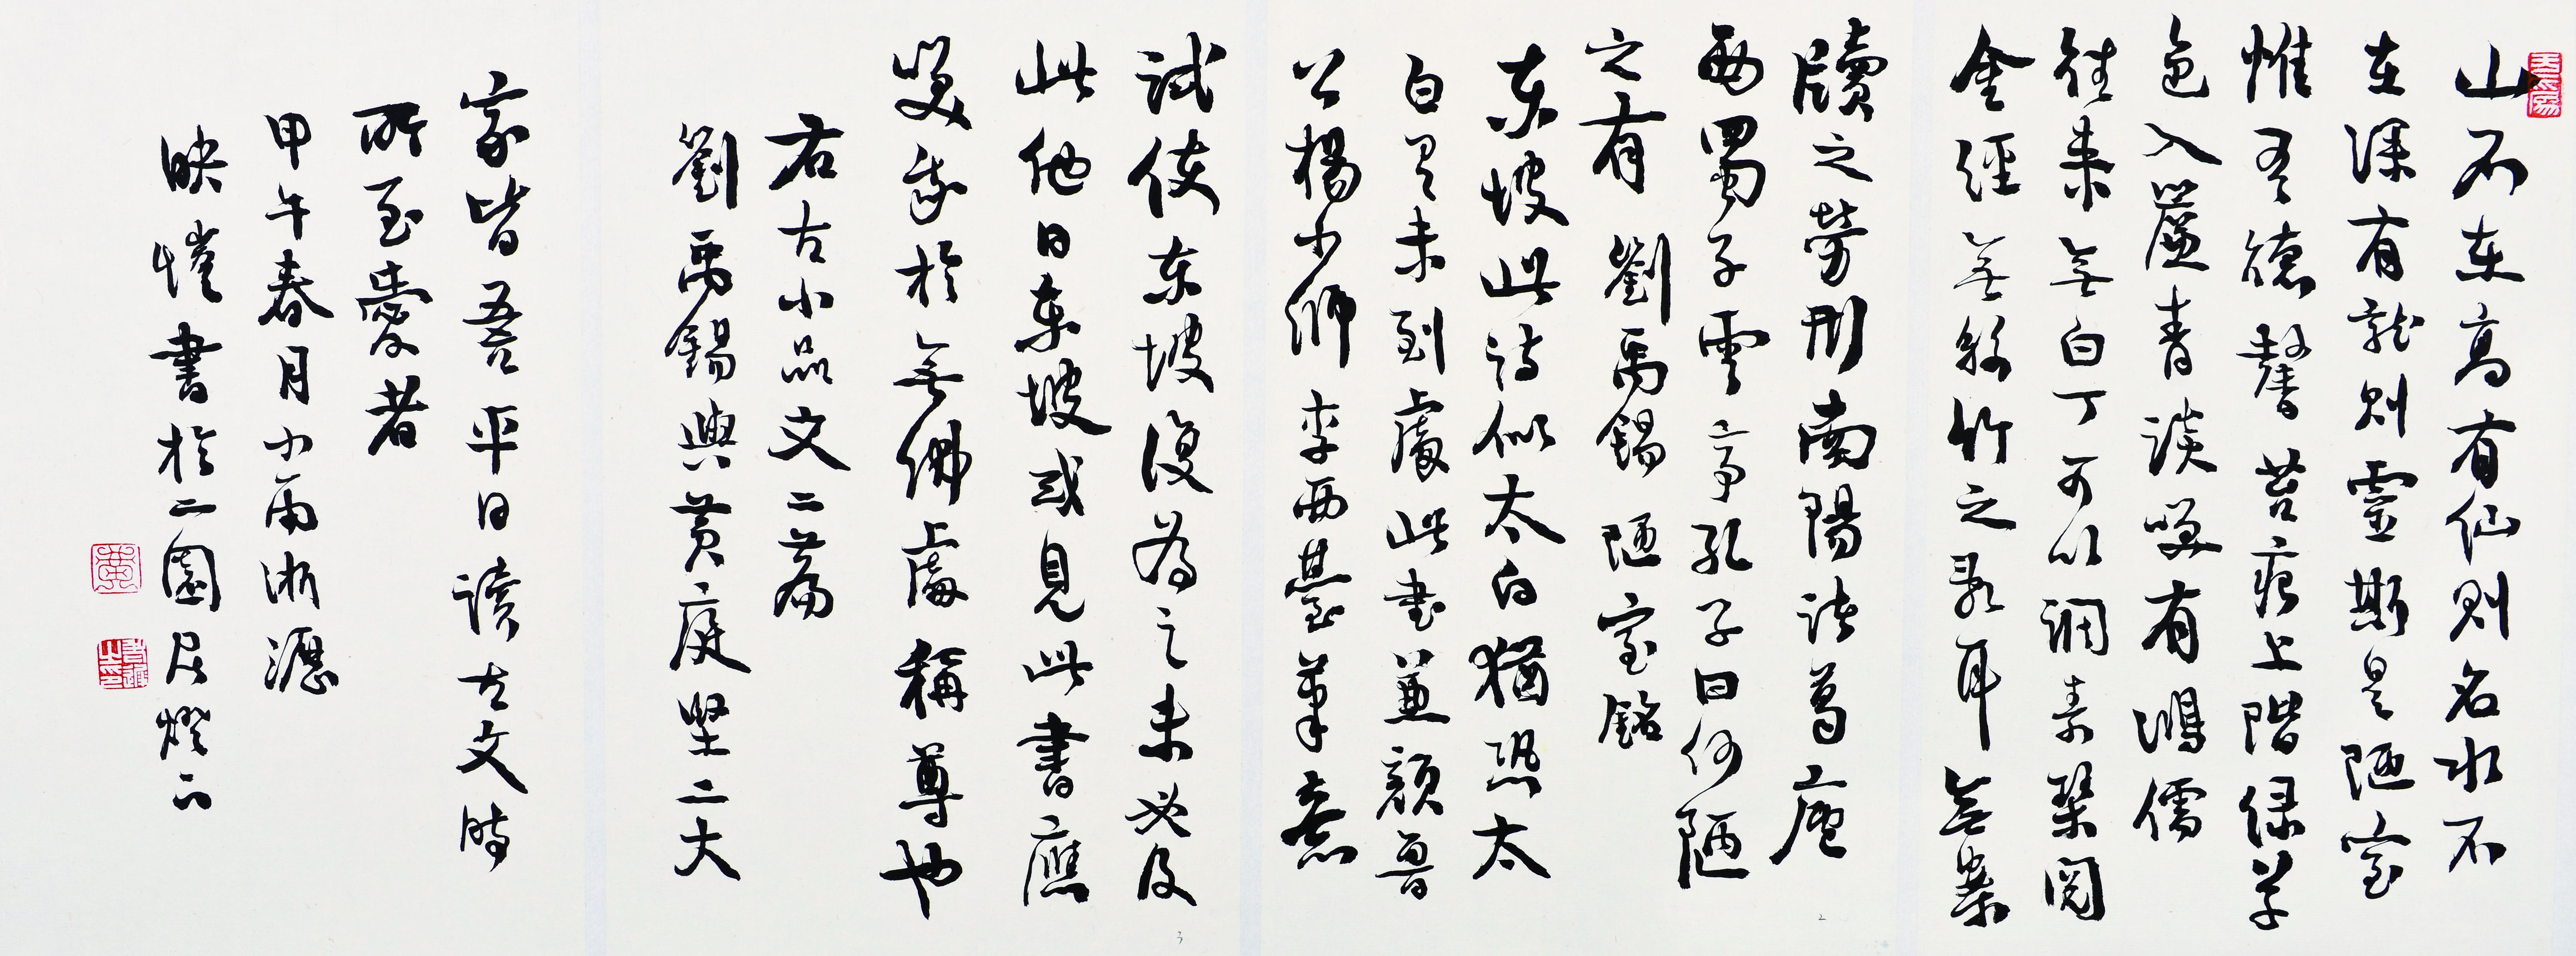 山不在高有仙則名水不
在深有龍則靈斯是陋室
惟吾德馨苔痕上階绿草
色入簾青談笑有鴻儒
往来無白丁可以调素琴閱
金經無絲竹之亂耳無案
牘之勞形南陽諸葛廬
西蜀子雲亭孔子曰何陋
之有 劉禹錫 陋室銘
东坡此诗似太白猶恐太
白有未到處此书兼顔魯
公楊少師李西臺筆意
試使东坡復为之未必及
此他日东坡或見此書應
笑我於無佛處稱尊也
右古小品文二篇
劉禹錫與黄庭坚二大
家皆吾平日读古文時
所至愛者
甲午春月小雨淅瀝
映愷書於二園居燈下